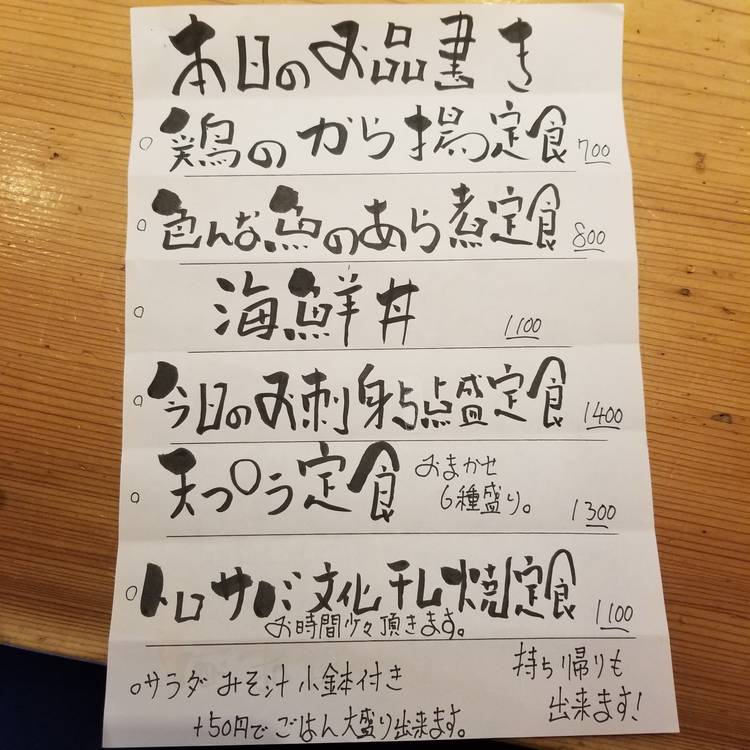 本日のお品書き
○鶏のから揚定食 700
○色んな魚のあら煮定食 800
○海鮮丼 1100
○今日のお刺身5点盛定食 1400
○天ぷら定食 おまかせ 6種盛り。 1300
○トロサバ文化干し焼定食 1100
お時間少々頂きます。
○サラダ みそ汁 小鉢付き
+50円でごはん大盛り出来ます。
持ち帰りも
出来ます!